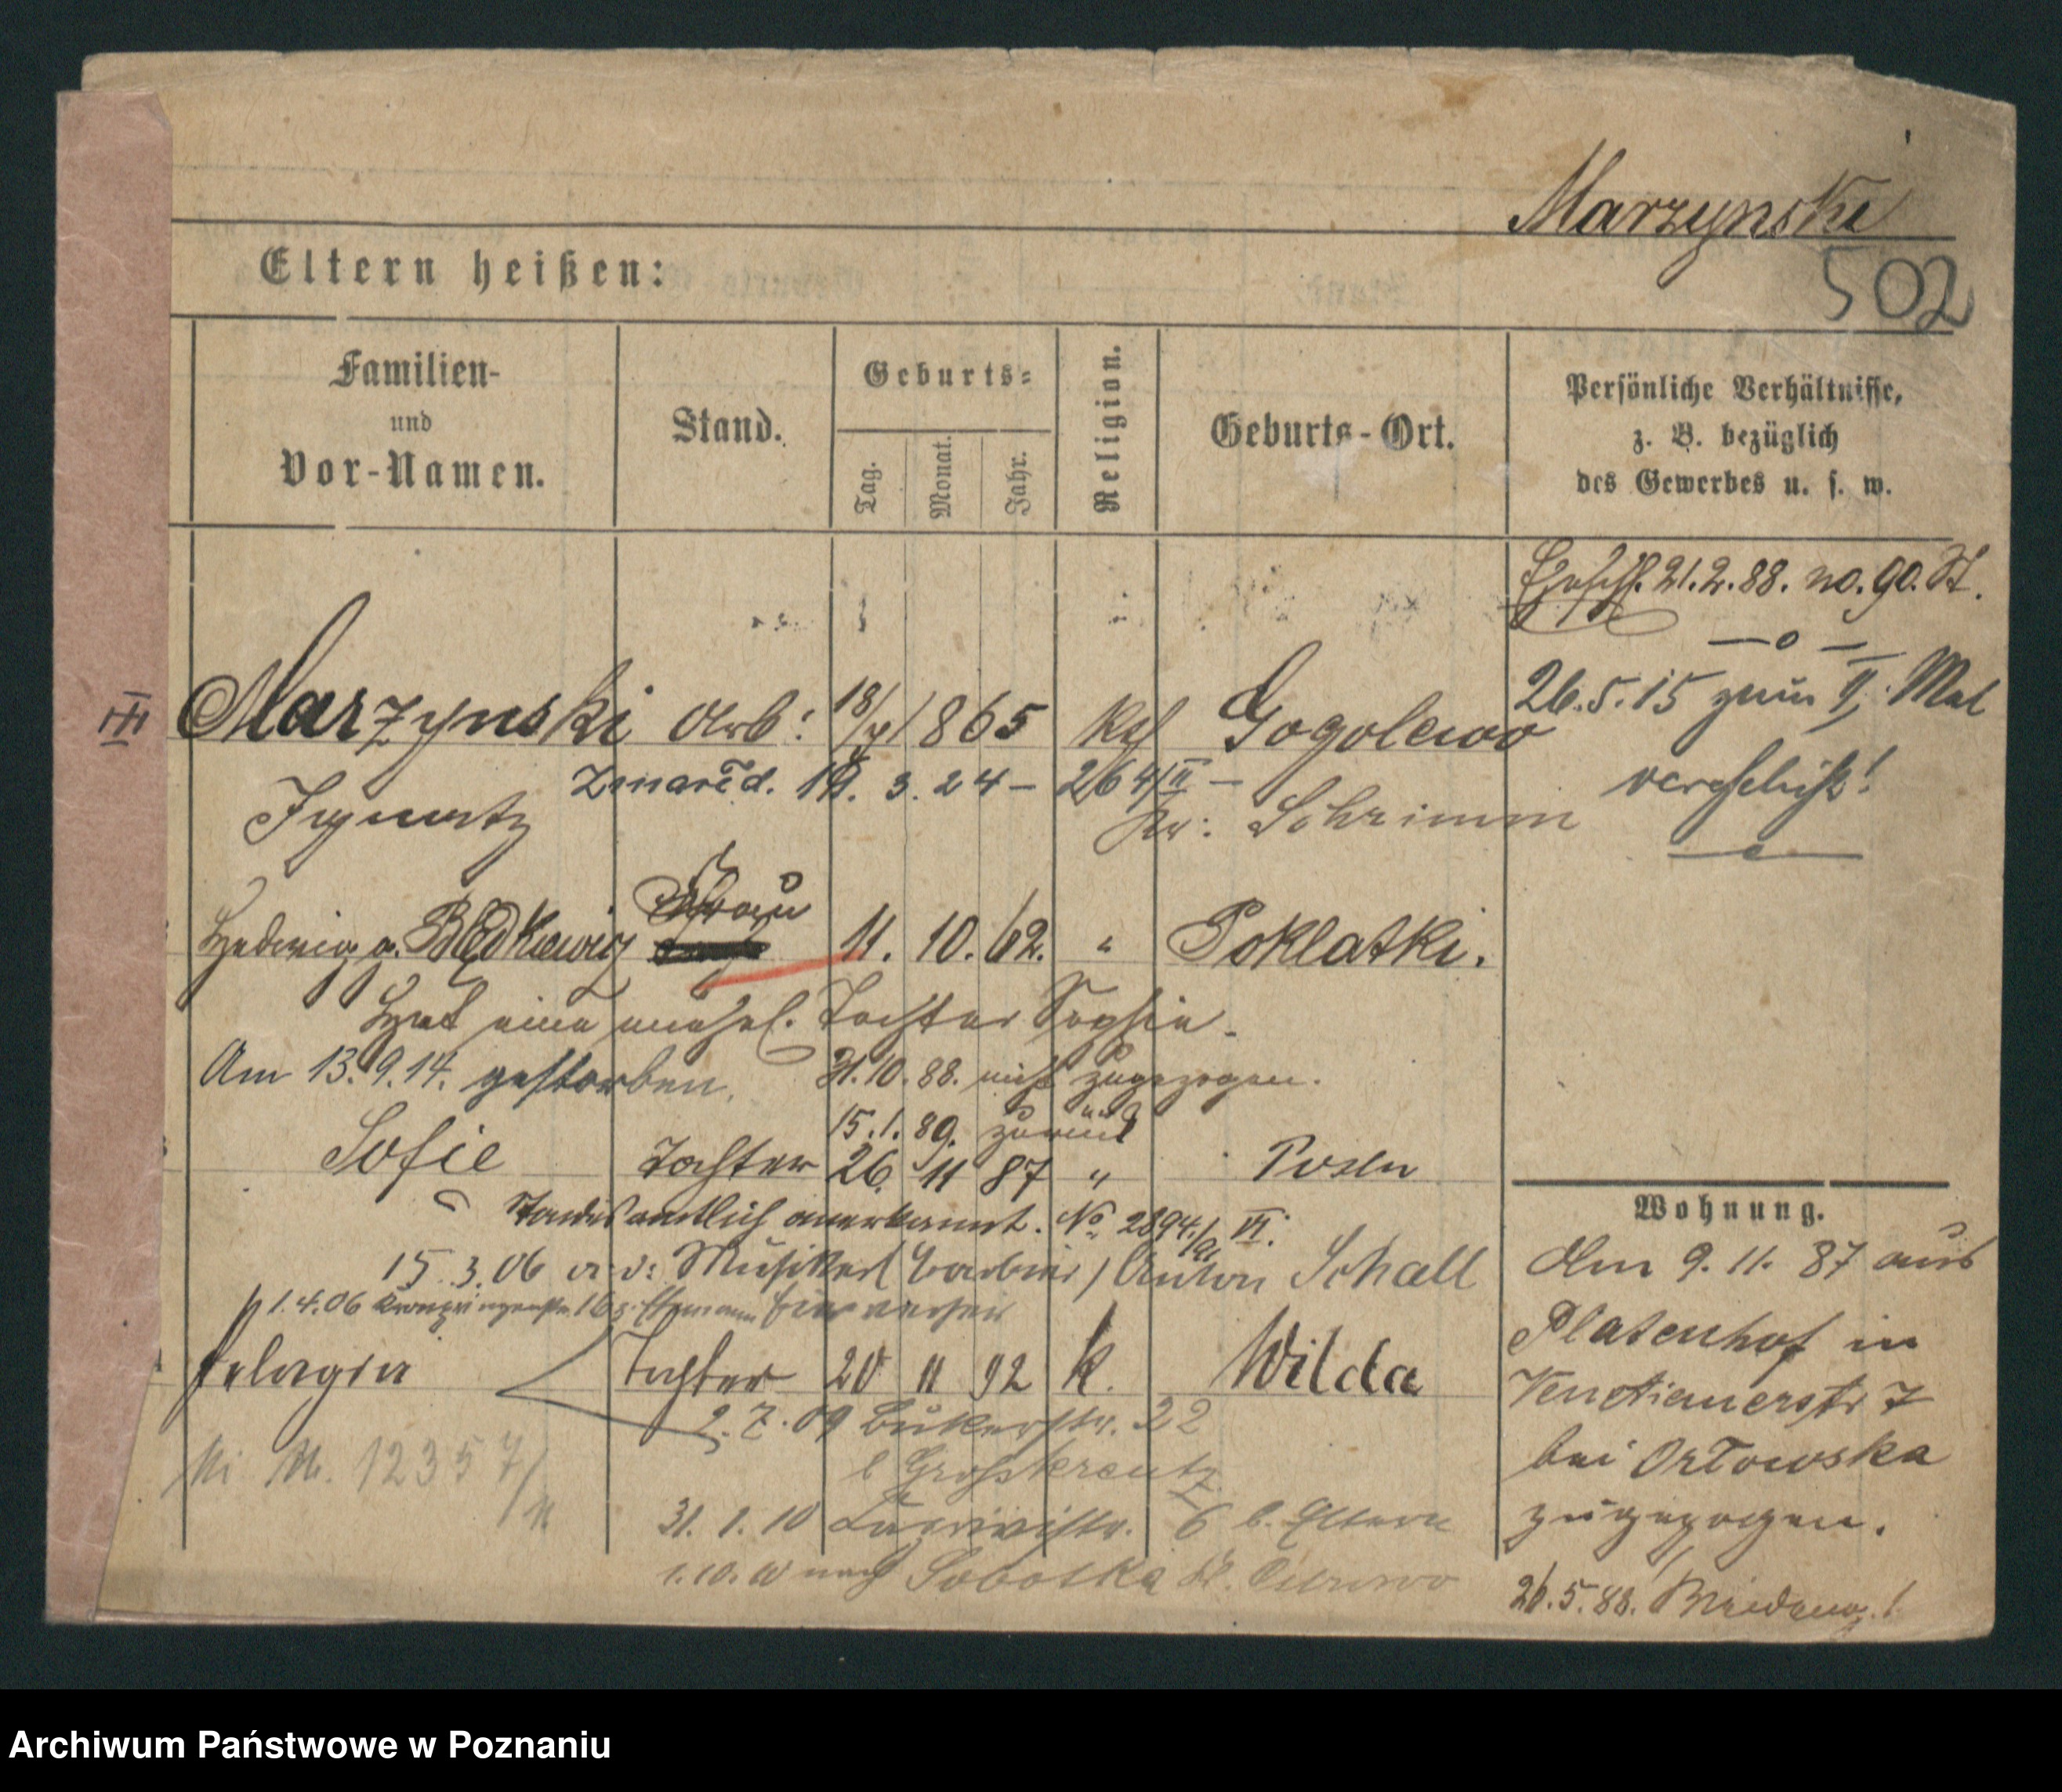 Marzynski
502
Eltern heißen:
Familien-
und
Vor-Namen.
Stand.
Geburts-
Tag.
Monat.
Jahr.
Religion.
Geburts-Ort.
Persönliche Verhältnisse,
z. B. bezüglich
des Gewerbes u. s. w.
21.2.88. no. 90. St.
III Marzynski Arb: 18/ 1865 Kath Gogolewo
26.5.15 zum II. Mal
verehelicht!
Zmarł d. 19. 3. 24 – 264/II –
Ignatz Kr: Schrimm
Hedwig g. Błędkiewicz Frau 11. 10. 62. " Poklatki.
Hat eine unehel. Tochter Sophie.
Am 13.9.14. gestorben. 31.10.88. nicht zugezogen.
15.1.89. zurück
Sofie Tochter 26. 11 87 " Posen
Standesamtlich anerkannt. No 2894/91 VI.
15.3.06 a. d: Musiker (Barbier) Anton Schall
1.4.06 Kronprinzenstr. 16 z. Ehemann
Pelagia Tochter 20 11 92 k. Wilda
2.7.09 Bukerstr. 22
b Grosskreutz
No. 12357/
31.1.10 6 b. Eltern
1.10.10 nach Sobotka Kr. Ostrowo
Wohnung.
Am 9.11.87 aus
Platenhof in
Venetianerstr 7
bei Orłowska
zugezogen.
26.5.88.
Archiwum Państwowe w Poznaniu